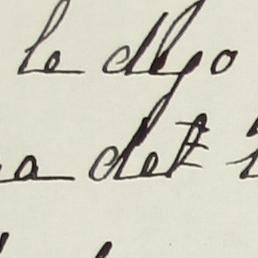 le dejo
a det